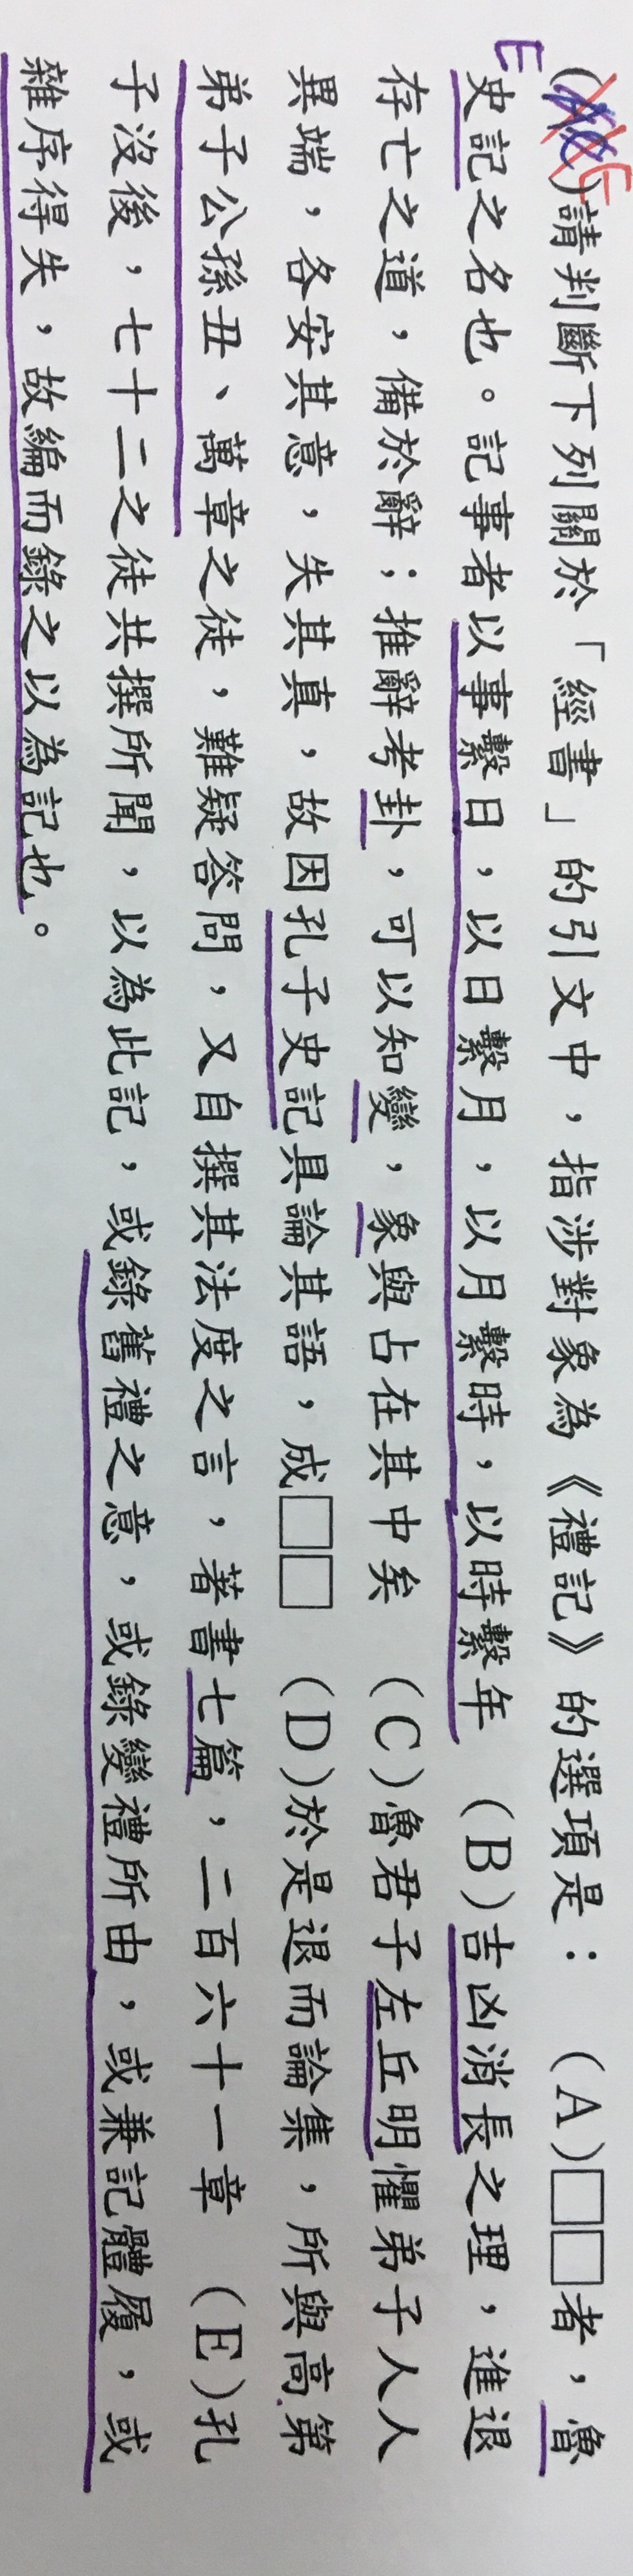 E
( )請判斷下列關於「經書」的引文中，指涉對象為《禮記》的選項是： (A)□□者，魯
史記之名也。記事者以事繫日，以日繫月，以月繫時，以時繫年 (B)吉凶消長之理，進退
存亡之道，備於辭；推辭考卦，可以知變，象與占在其中矣 (C)魯君子左丘明懼弟子人人
異端，各安其意，失其真，故因孔子史記具論其語，成□□ (D)於是退而論集，所與高第
弟子公孫丑、萬章之徒，難疑答問，又自撰其法度之言，著書七篇，二百六十一章 (E)孔
子沒後，七十二之徒共撰所聞，以為此記，或錄舊禮之意，或錄變禮所由，或兼記體履，或
雜序得失，故編而錄之以為記也。